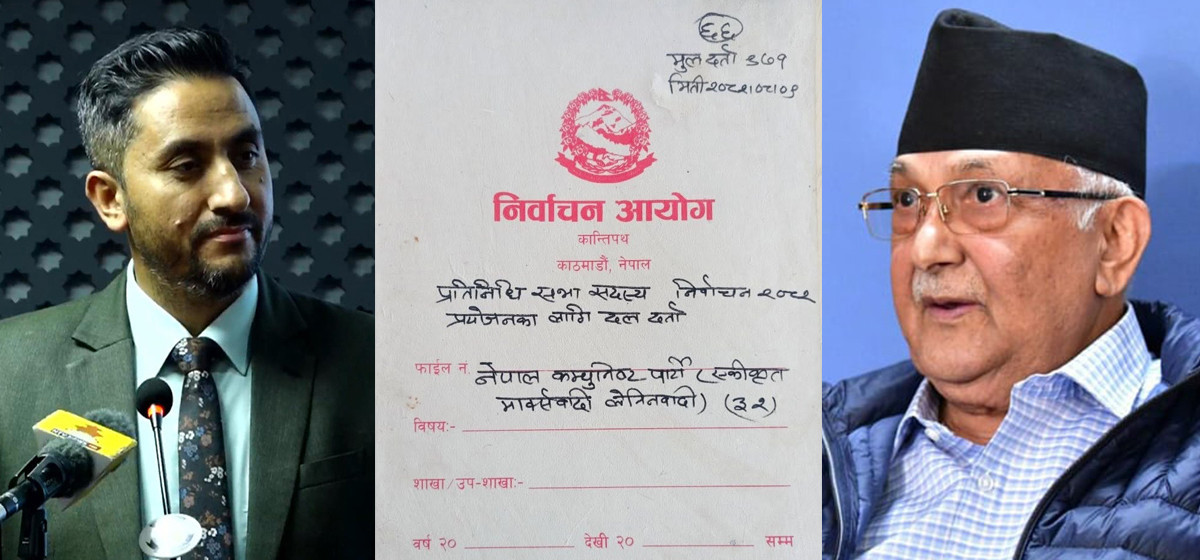 ६६
मुल दर्ता ३७१
मिती २०८२।०८।०९
निर्वाचन आयोग
कान्तिपथ
काठमाडौं, नेपाल
प्रतिनिधि सभा सदस्य निर्वाचन २०८२
प्रयोजनका लागि दल दर्ता
फाईल नं. नेपाल कम्युनिष्ट पार्टी (एकीकृत
मार्क्सवादी लेनिनवादी) (३२)
विषय:-
शाखा/उप-शाखा:-
वर्ष २० देखी २० सम्म